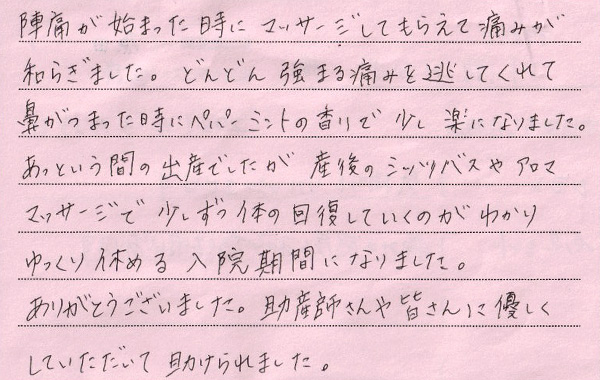 陣痛が始まった時にマッサージしてもらえて痛みが
和らぎました。どんどん強まる痛みを逃してくれて
鼻がつまった時にペパーミントの香りで少し楽になりました。
あっという間の出産でしたが産後のシッツバスやアロマ
マッサージで少しずつ体の回復していくのがわかり
ゆっくり休める入院期間になりました。
ありがとうございました。助産師さんや皆さんに優しく
していただいて助けられました。